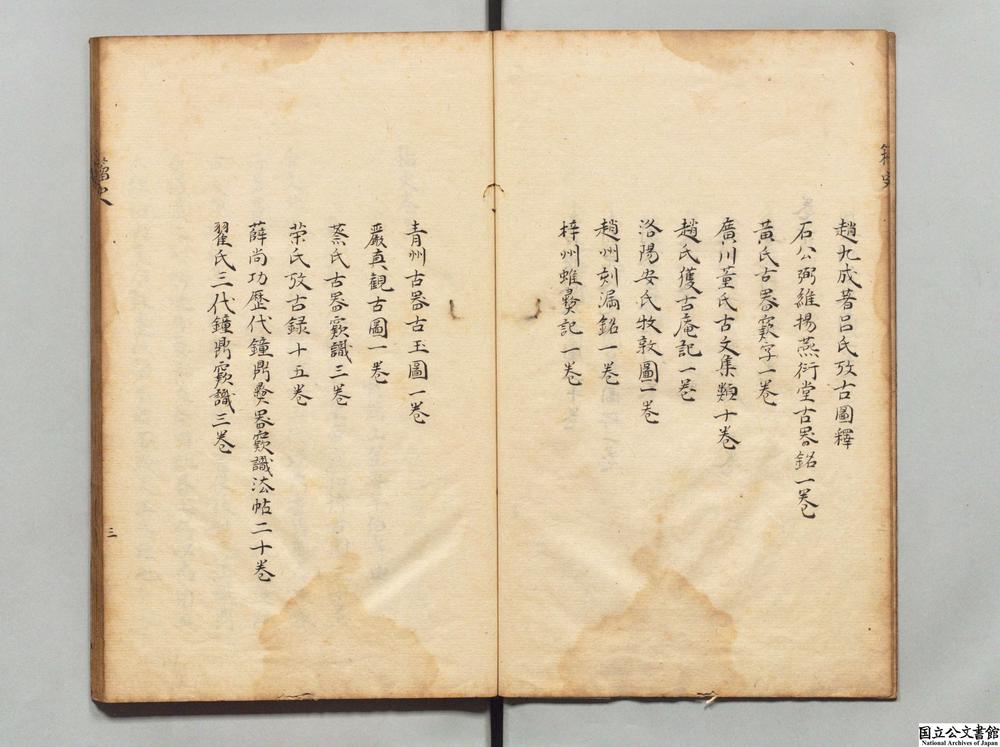 趙九成著呂氏攷古圖釋
石公弼維揚燕衍堂古器銘一卷
黃氏古器款字一卷
廣川董氏古文集類十卷
趙氏獲古庵記一卷
洛陽安氏牧敦圖一卷
趙州刻漏銘一卷
梓州蜼彝記一卷
青州古器古玉圖一卷
嚴真觀古圖一卷
蔡氏古器款識三卷
榮氏攷古録十五卷
薛尚功歷代鐘鼎彝器款識法帖二十卷
翟氏三代鐘鼎款識三卷
籀史
三
国立公文書館
National Archives of Japan